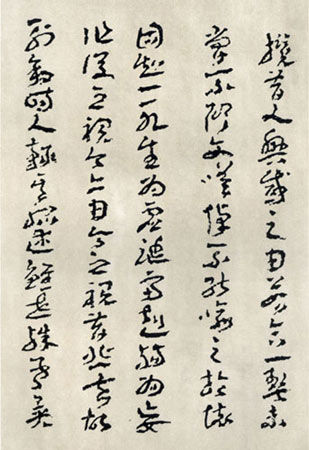 攬昔人興感之由若合一契未
嘗不臨文嗟悼不能喻之於懷
固知一死生為虛誕齊彭殤為妄
作後之視今亦由今之視昔悲夫故
列敘時人錄其所述雖世殊事異